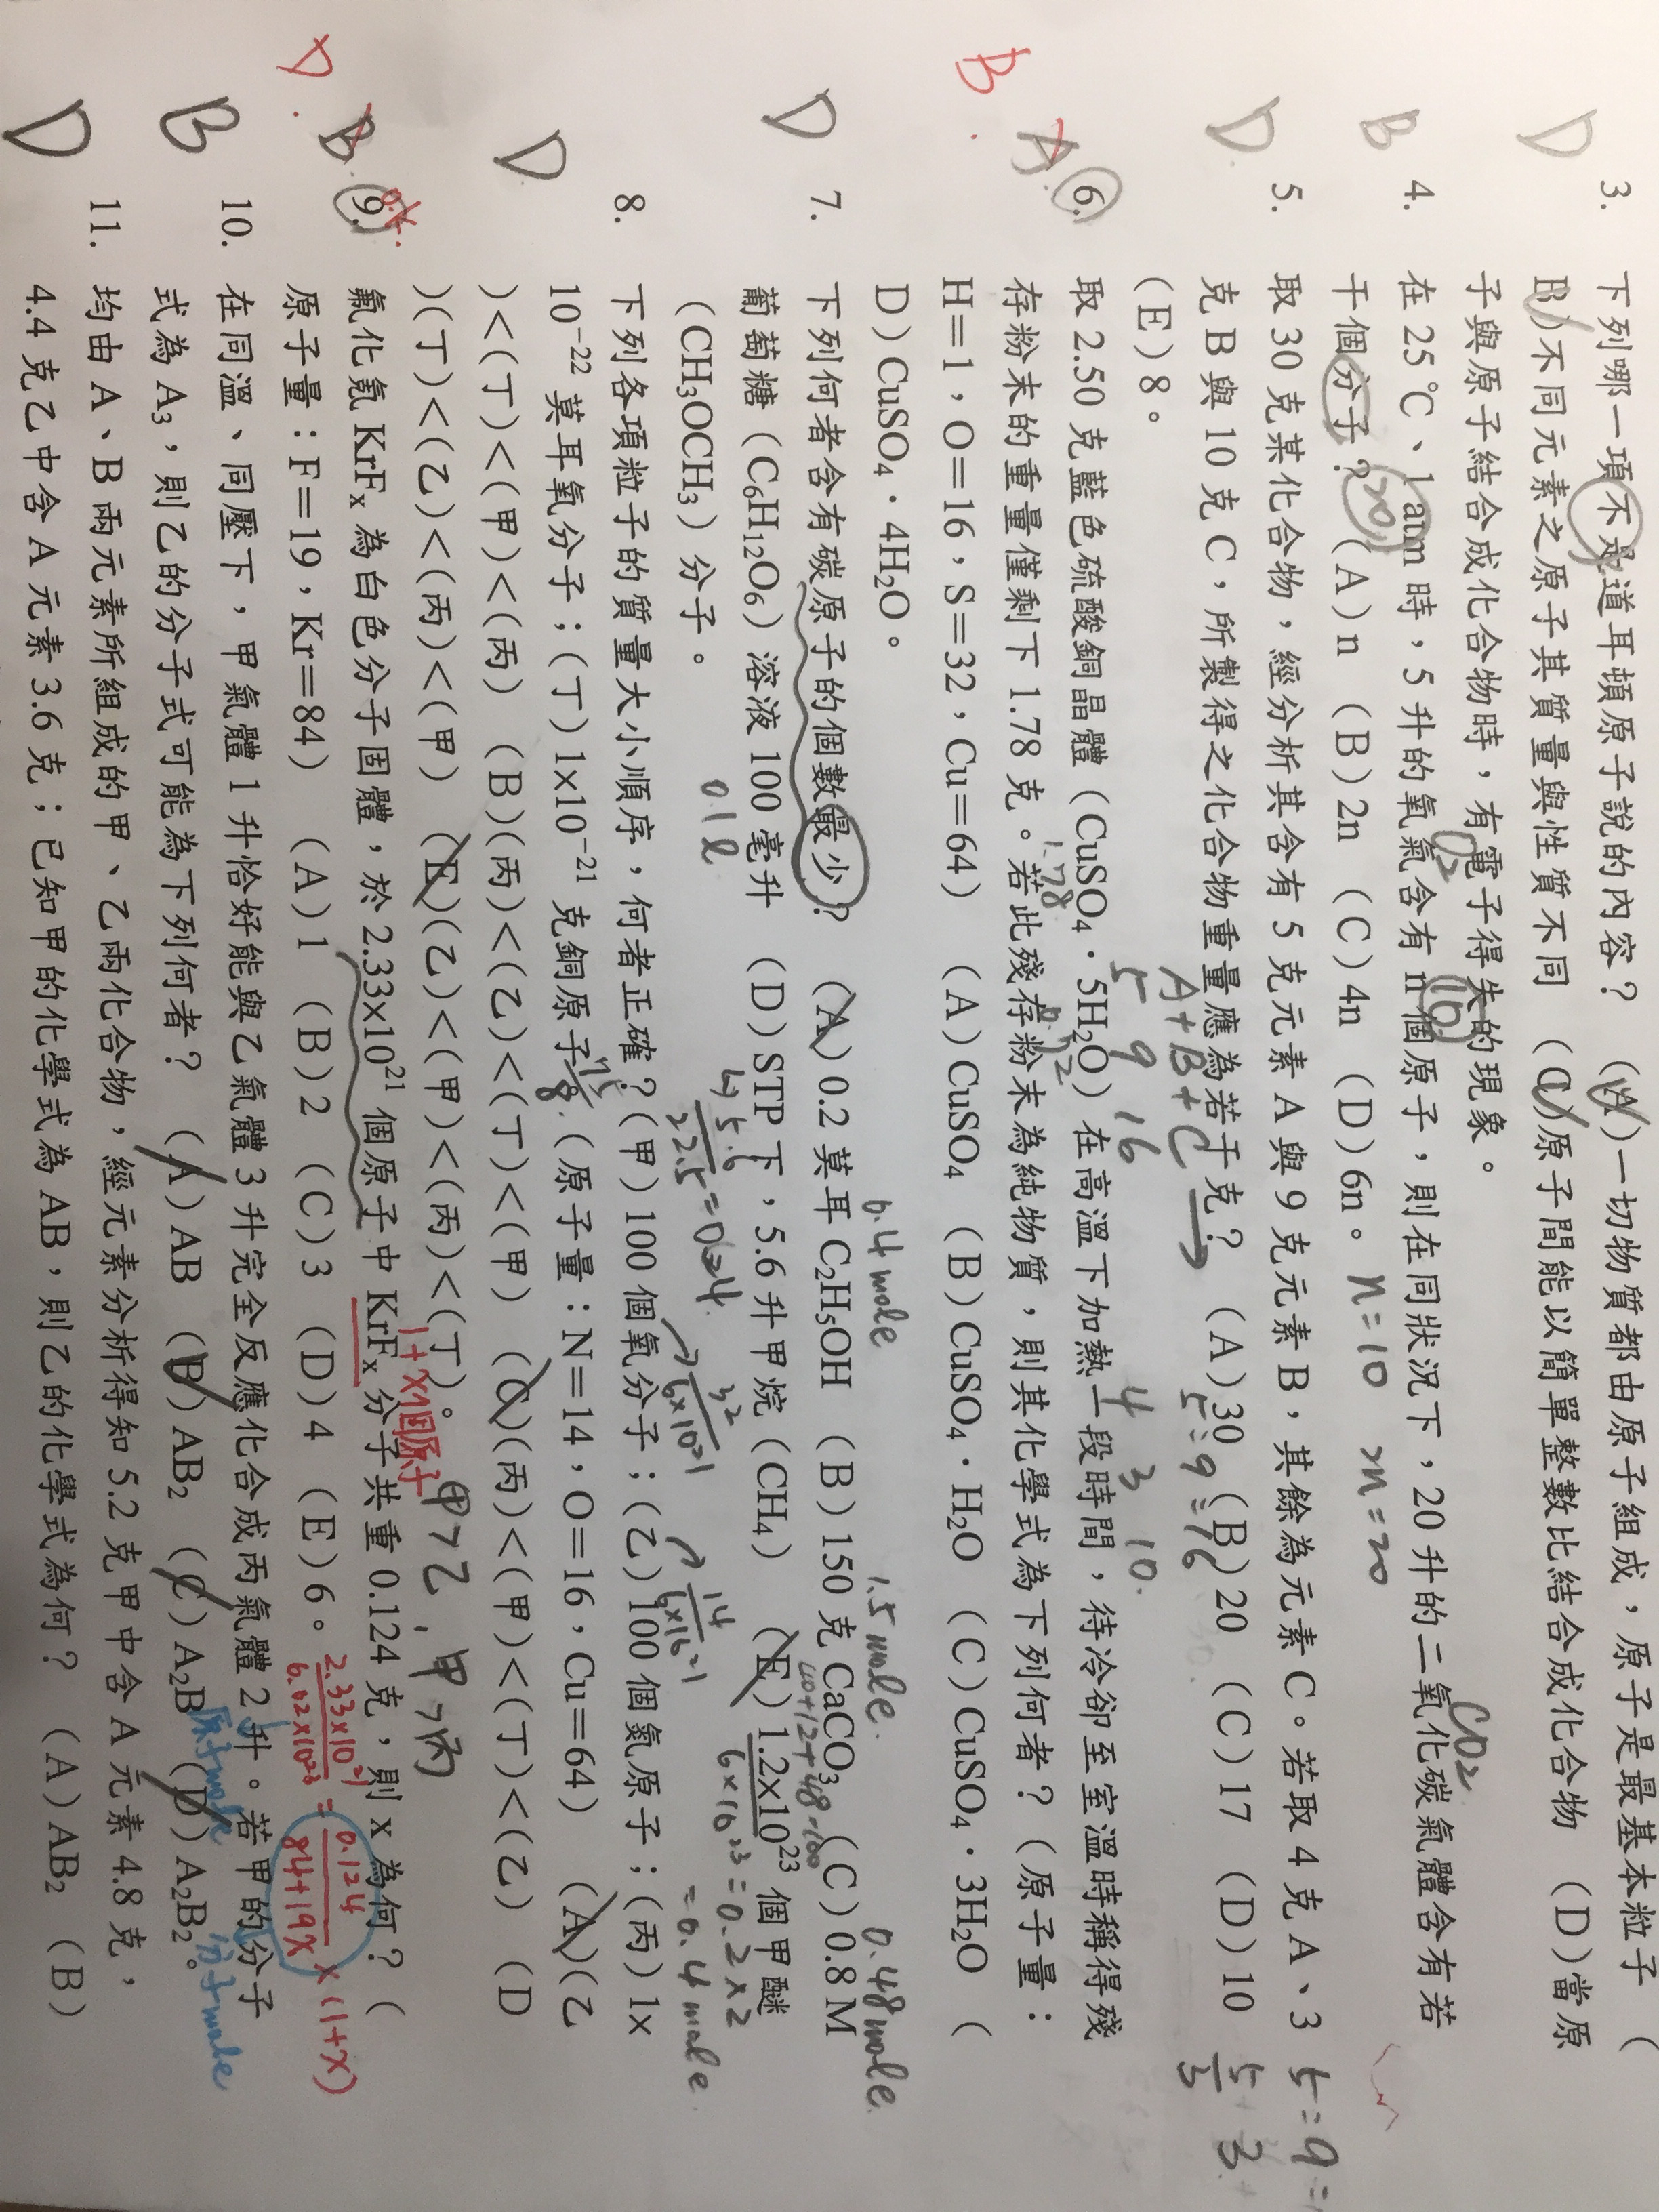 D 3. 下列哪一項不是道耳頓原子說的內容？ (A)一切物質都由原子組成，原子是最基本粒子 (
B)不同元素之原子其質量與性質不同 (C)原子間能以簡單整數比結合成化合物 (D)當原
子與原子結合成化合物時，有電子得失的現象。
O2 16 CO2
B 4. 在 25℃、1 atm 時，5 升的氧氣含有 n 個原子，則在同狀況下，20 升的二氧化碳氣體含有若
干個分子？ (A) n (B) 2n (C) 4n (D) 6n。 n=10 2n=20
20
D 5. 取 30 克某化合物，經分析其含有 5 克元素 A 與 9 克元素 B，其餘為元素 C。若取 4 克 A、3
克 B 與 10 克 C，所製得之化合物重量應為若干克？ (A) 30 (B) 20 (C) 17 (D) 10
(E) 8。
A+B+C →
5 9 16 4 3 10.
5:9:16
5/3
B. A. 6. 取 2.50 克藍色硫酸銅晶體（CuSO₄．5H₂O）在高溫下加熱一段時間，待冷卻至室溫時稱得殘
存粉末的重量僅剩下 1.78 克。若此殘存粉末為純物質，則其化學式為下列何者？（原子量：
H＝1，O＝16，S＝32，Cu＝64） (A) CuSO₄ (B) CuSO₄．H₂O (C) CuSO₄．3H₂O (
D) CuSO₄．4H₂O。
1.78
0.4 mole 1.5 mole. 0.48 mole.
D 7. 下列何者含有碳原子的個數最少？ (A) 0.2 莫耳 C₂H₅OH (B) 150 克 CaCO₃ (C) 0.8 M
40+12+48=100
葡萄糖（C₆H₁₂O₆）溶液 100 毫升 (D) STP 下，5.6 升甲烷（CH₄） (E) 1.2×10²³ 個甲醚
（CH₃OCH₃）分子。
0.1 l
6×10²³=0.2×2
=0.4 mole.
D 8. 下列各項粒子的質量大小順序，何者正確？(甲) 100 個氧分子；(乙) 100 個氮原子；(丙) 1×
10⁻²² 莫耳氧分子；(丁) 1×10⁻²¹ 克銅原子。（原子量：N＝14，O＝16，Cu＝64） (A)(乙
)＜(丁)＜(甲)＜(丙) (B)(丙)＜(乙)＜(丁)＜(甲) (C)(丙)＜(甲)＜(丁)＜(乙) (D
)(丁)＜(乙)＜(丙)＜(甲) (E)(乙)＜(甲)＜(丙)＜(丁)。
甲>乙，甲>丙
1+x個原子
D. B. 9. 氟化氪 KrFₓ 為白色分子固體，於 2.33×10²¹ 個原子中 KrFₓ 分子共重 0.124 克，則 x 為何？（
原子量：F＝19，Kr＝84） (A) 1 (B) 2 (C) 3 (D) 4 (E) 6。
2.33×10²¹/6.02×10²³ = 0.124/84+19x ×(1+x)
原子mole 分子mole
B 10. 在同溫、同壓下，甲氣體 1 升恰好能與乙氣體 3 升完全反應化合成丙氣體 2 升。若甲的分子
式為 A₃，則乙的分子式可能為下列何者？ (A) AB (B) AB₂ (C) A₂B (D) A₂B₂。
D 11. 均由 A、B 兩元素所組成的甲、乙兩化合物，經元素分析得知 5.2 克甲中含 A 元素 4.8 克，
4.4 克乙中含 A 元素 3.6 克；已知甲的化學式為 AB，則乙的化學式為何？ (A) AB₂ (B)